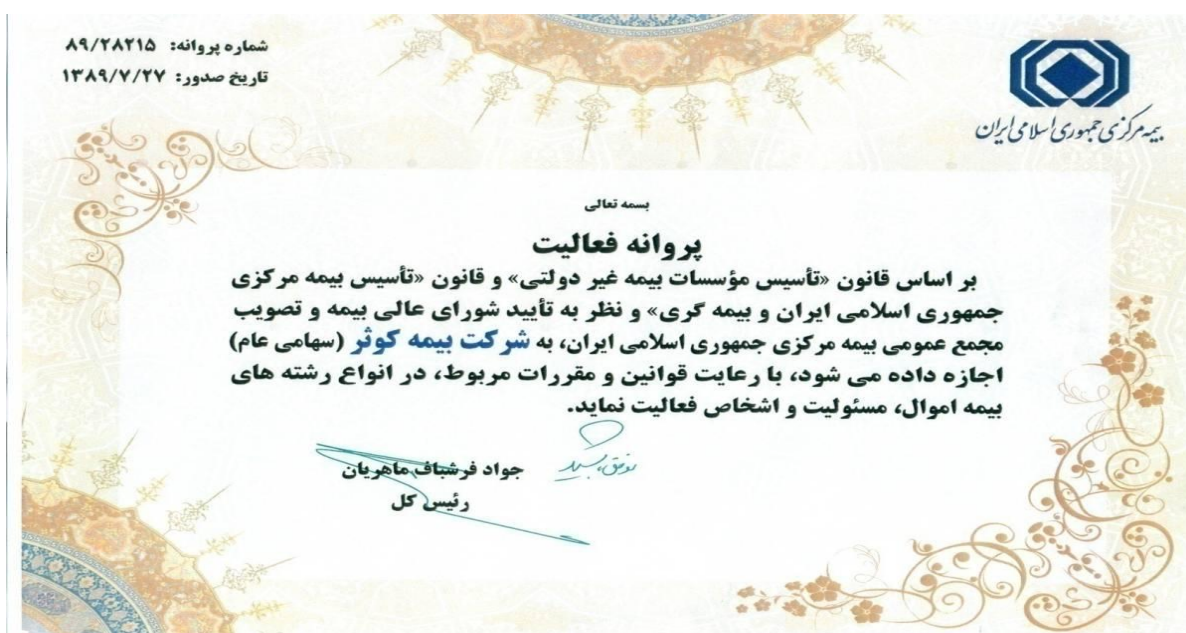 شماره پروانه: ۸۹/۲۸۲۱۵
تاریخ صدور: ۱۳۸۹/۷/۲۷
بیمه مرکزی جمهوری اسلامی ایران
بسمه تعالی
پروانه فعالیت
بر اساس قانون «تأسیس مؤسسات بیمه غیر دولتی» و قانون «تأسیس بیمه مرکزی
جمهوری اسلامی ایران و بیمه گری» و نظر به تأیید شورای عالی بیمه و تصویب
مجمع عمومی بیمه مرکزی جمهوری اسلامی ایران، به شرکت بیمه کوثر (سهامی عام)
اجازه داده می شود، با رعایت قوانین و مقررات مربوط، در انواع رشته های
بیمه اموال، مسئولیت و اشخاص فعالیت نماید.
موفق باشید
جواد فرشباف ماهریان
رئیس کل